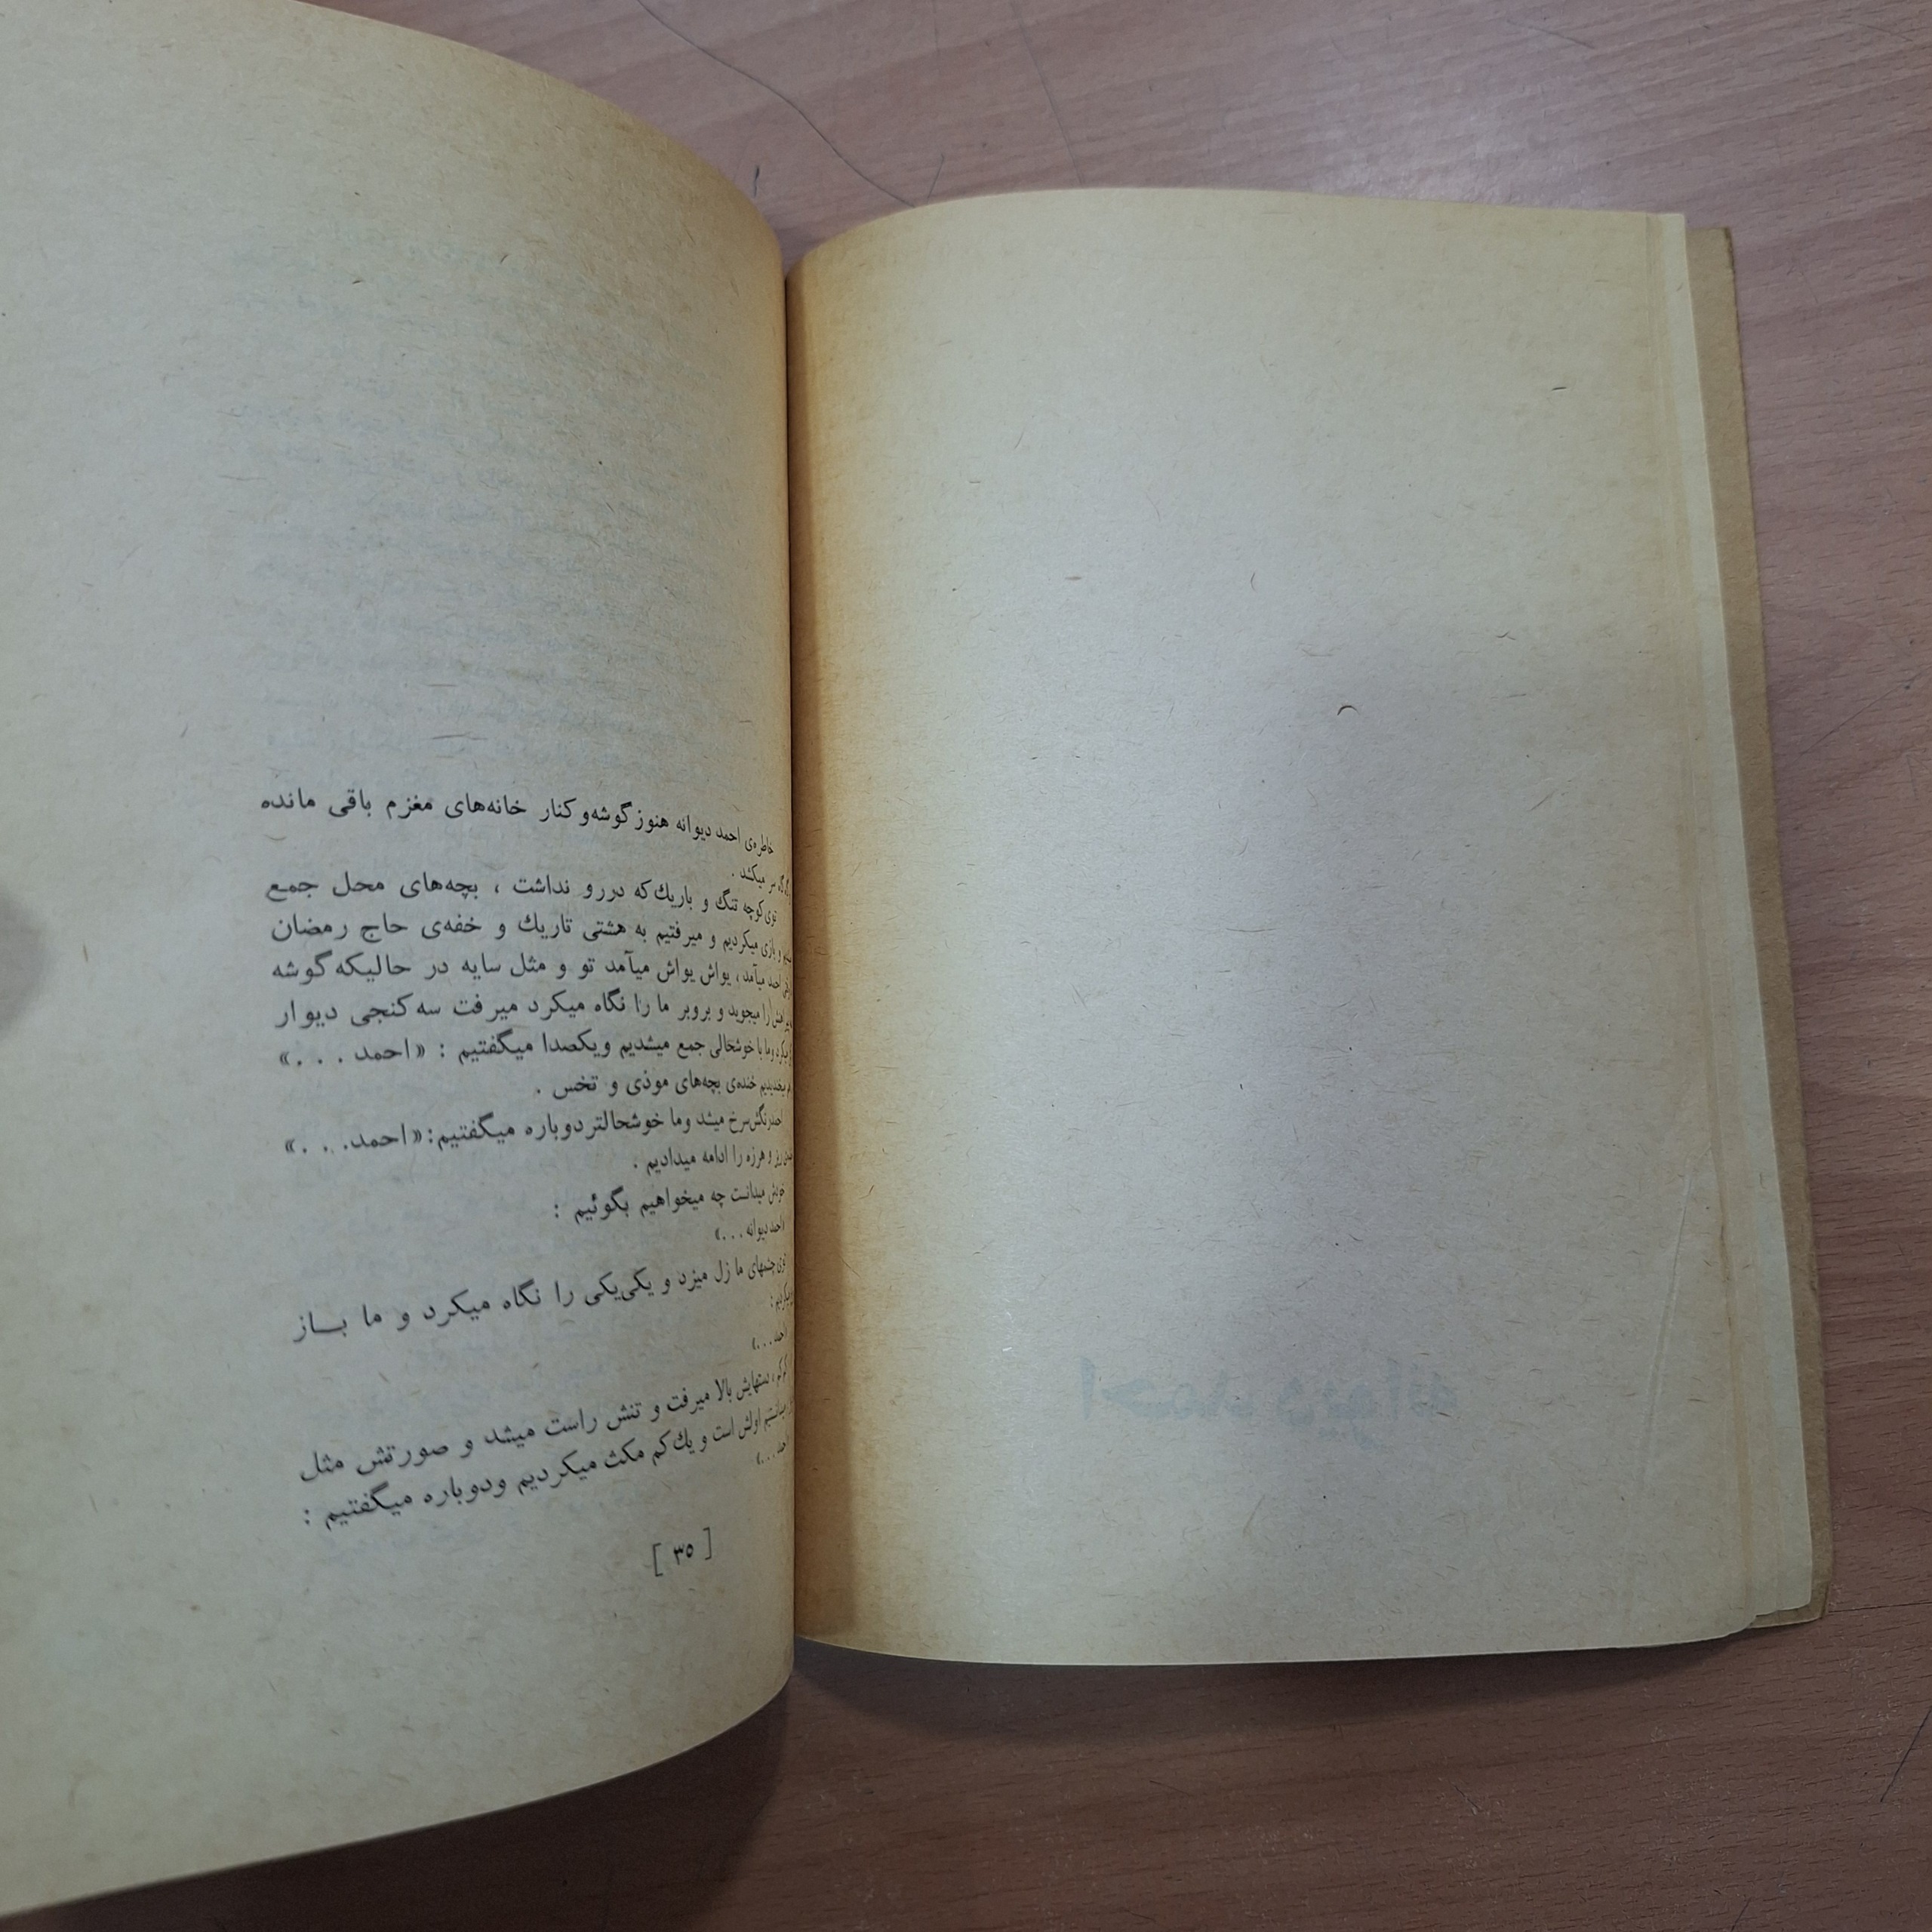 خاطره‌ی احمد دیوانه هنوز گوشه‌و کنار خانه‌های مغزم باقی مانده
سر میکشد .
توی کوچه تنگ و باریك که دررو نداشت ، بچه‌های محل جمع
و بازی میکردیم و میرفتیم به هشتی تاریك و خفه‌ی حاج رمضان
احمد میآمد ، یواش یواش میآمد تو و مثل سایه در حالیکه گوشه
را میجوید و بروبر ما را نگاه میکرد میرفت سه کنجی دیوار
میکرد وما با خوشحالی جمع میشدیم ویکصدا میگفتیم : « احمد . . . »
میخندیدیم خنده‌ی بچه‌های موذی و تخس .
احمد رنگش سرخ میشد وما خوشحالتر دوباره میگفتیم: « احمد. . . »
ریز و هرزه را ادامه میدادیم .
خودش میدانست چه میخواهیم بگوئیم :
احمد دیوانه . . . »
توی چشمهای ما زل میزد و یکی‌یکی را نگاه میکرد و ما بـــاز
میکردیم :
احمد . . . »
دستهایش بالا میرفت و تنش راست میشد و صورتش مثل
میدانستیم اولش است و یك کم مکث میکردیم ودوباره میگفتیم :
احمد . . . »
[ ۳۵ ]
احمد دیوانه